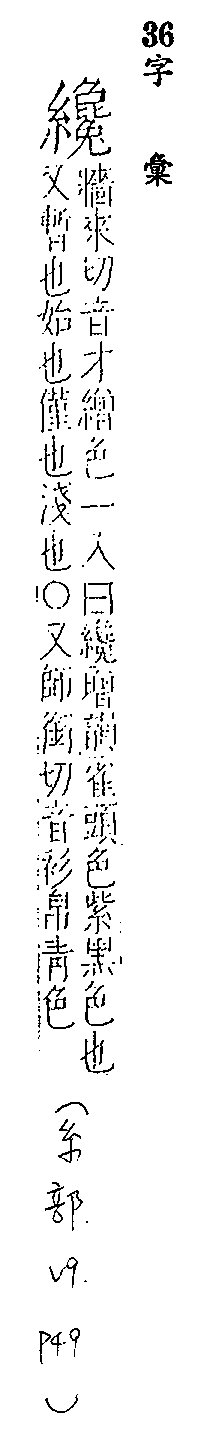 36 字彙
纔
牆來切音才繒色一入曰纔增韻雀頭色紫黑色也
又暫也始也僅也淺也○又師銜切音衫帛靑色
(糸部. V9. P49)